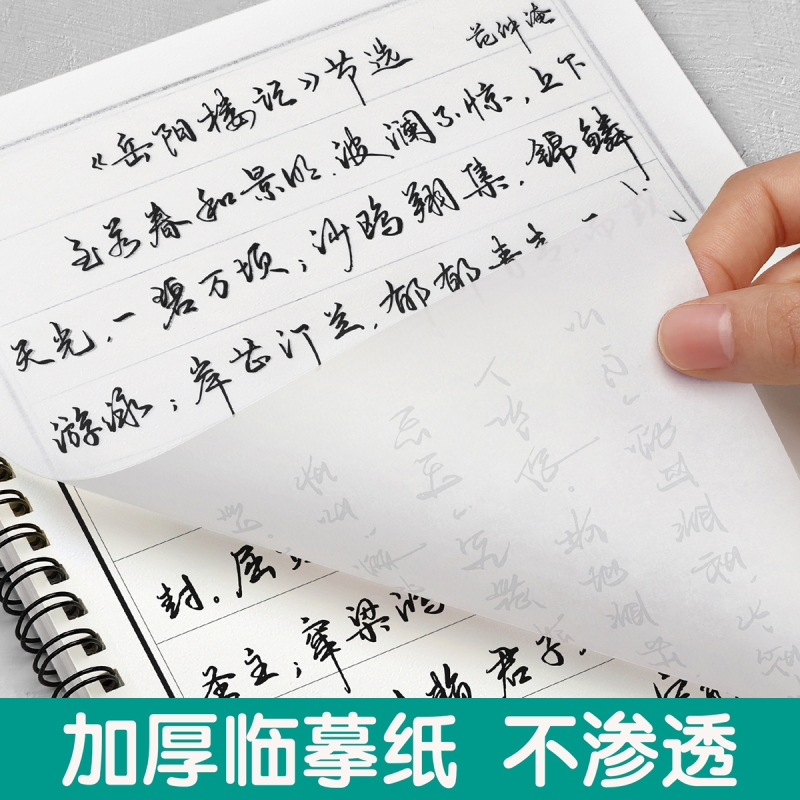 《岳阳楼记》节选 范仲淹
至若春和景明,波澜不惊,上下
天光,一碧万顷;沙鸥翔集,锦鳞
游泳;岸芷汀兰,郁郁青青
封。屈
圣主;窜梁鸿
赖君子
加厚临摹纸 不渗透